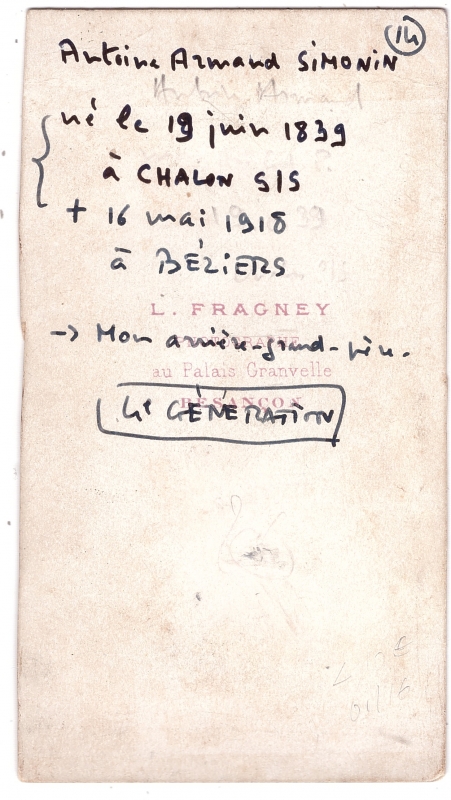 14
Antoine Armand SIMONIN
Antoine Armand
né le 19 juin 1839
à CHALON S/S
+ 16 mai 1918
à BÉZIERS
L. FRAGNEY
-> Mon arrière-grand-père.
au Palais Granvelle
BESANÇON
4e GÉNÉRATION